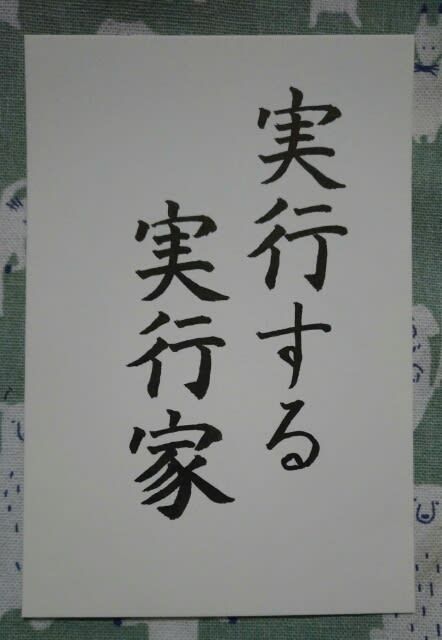 実行する
実行家